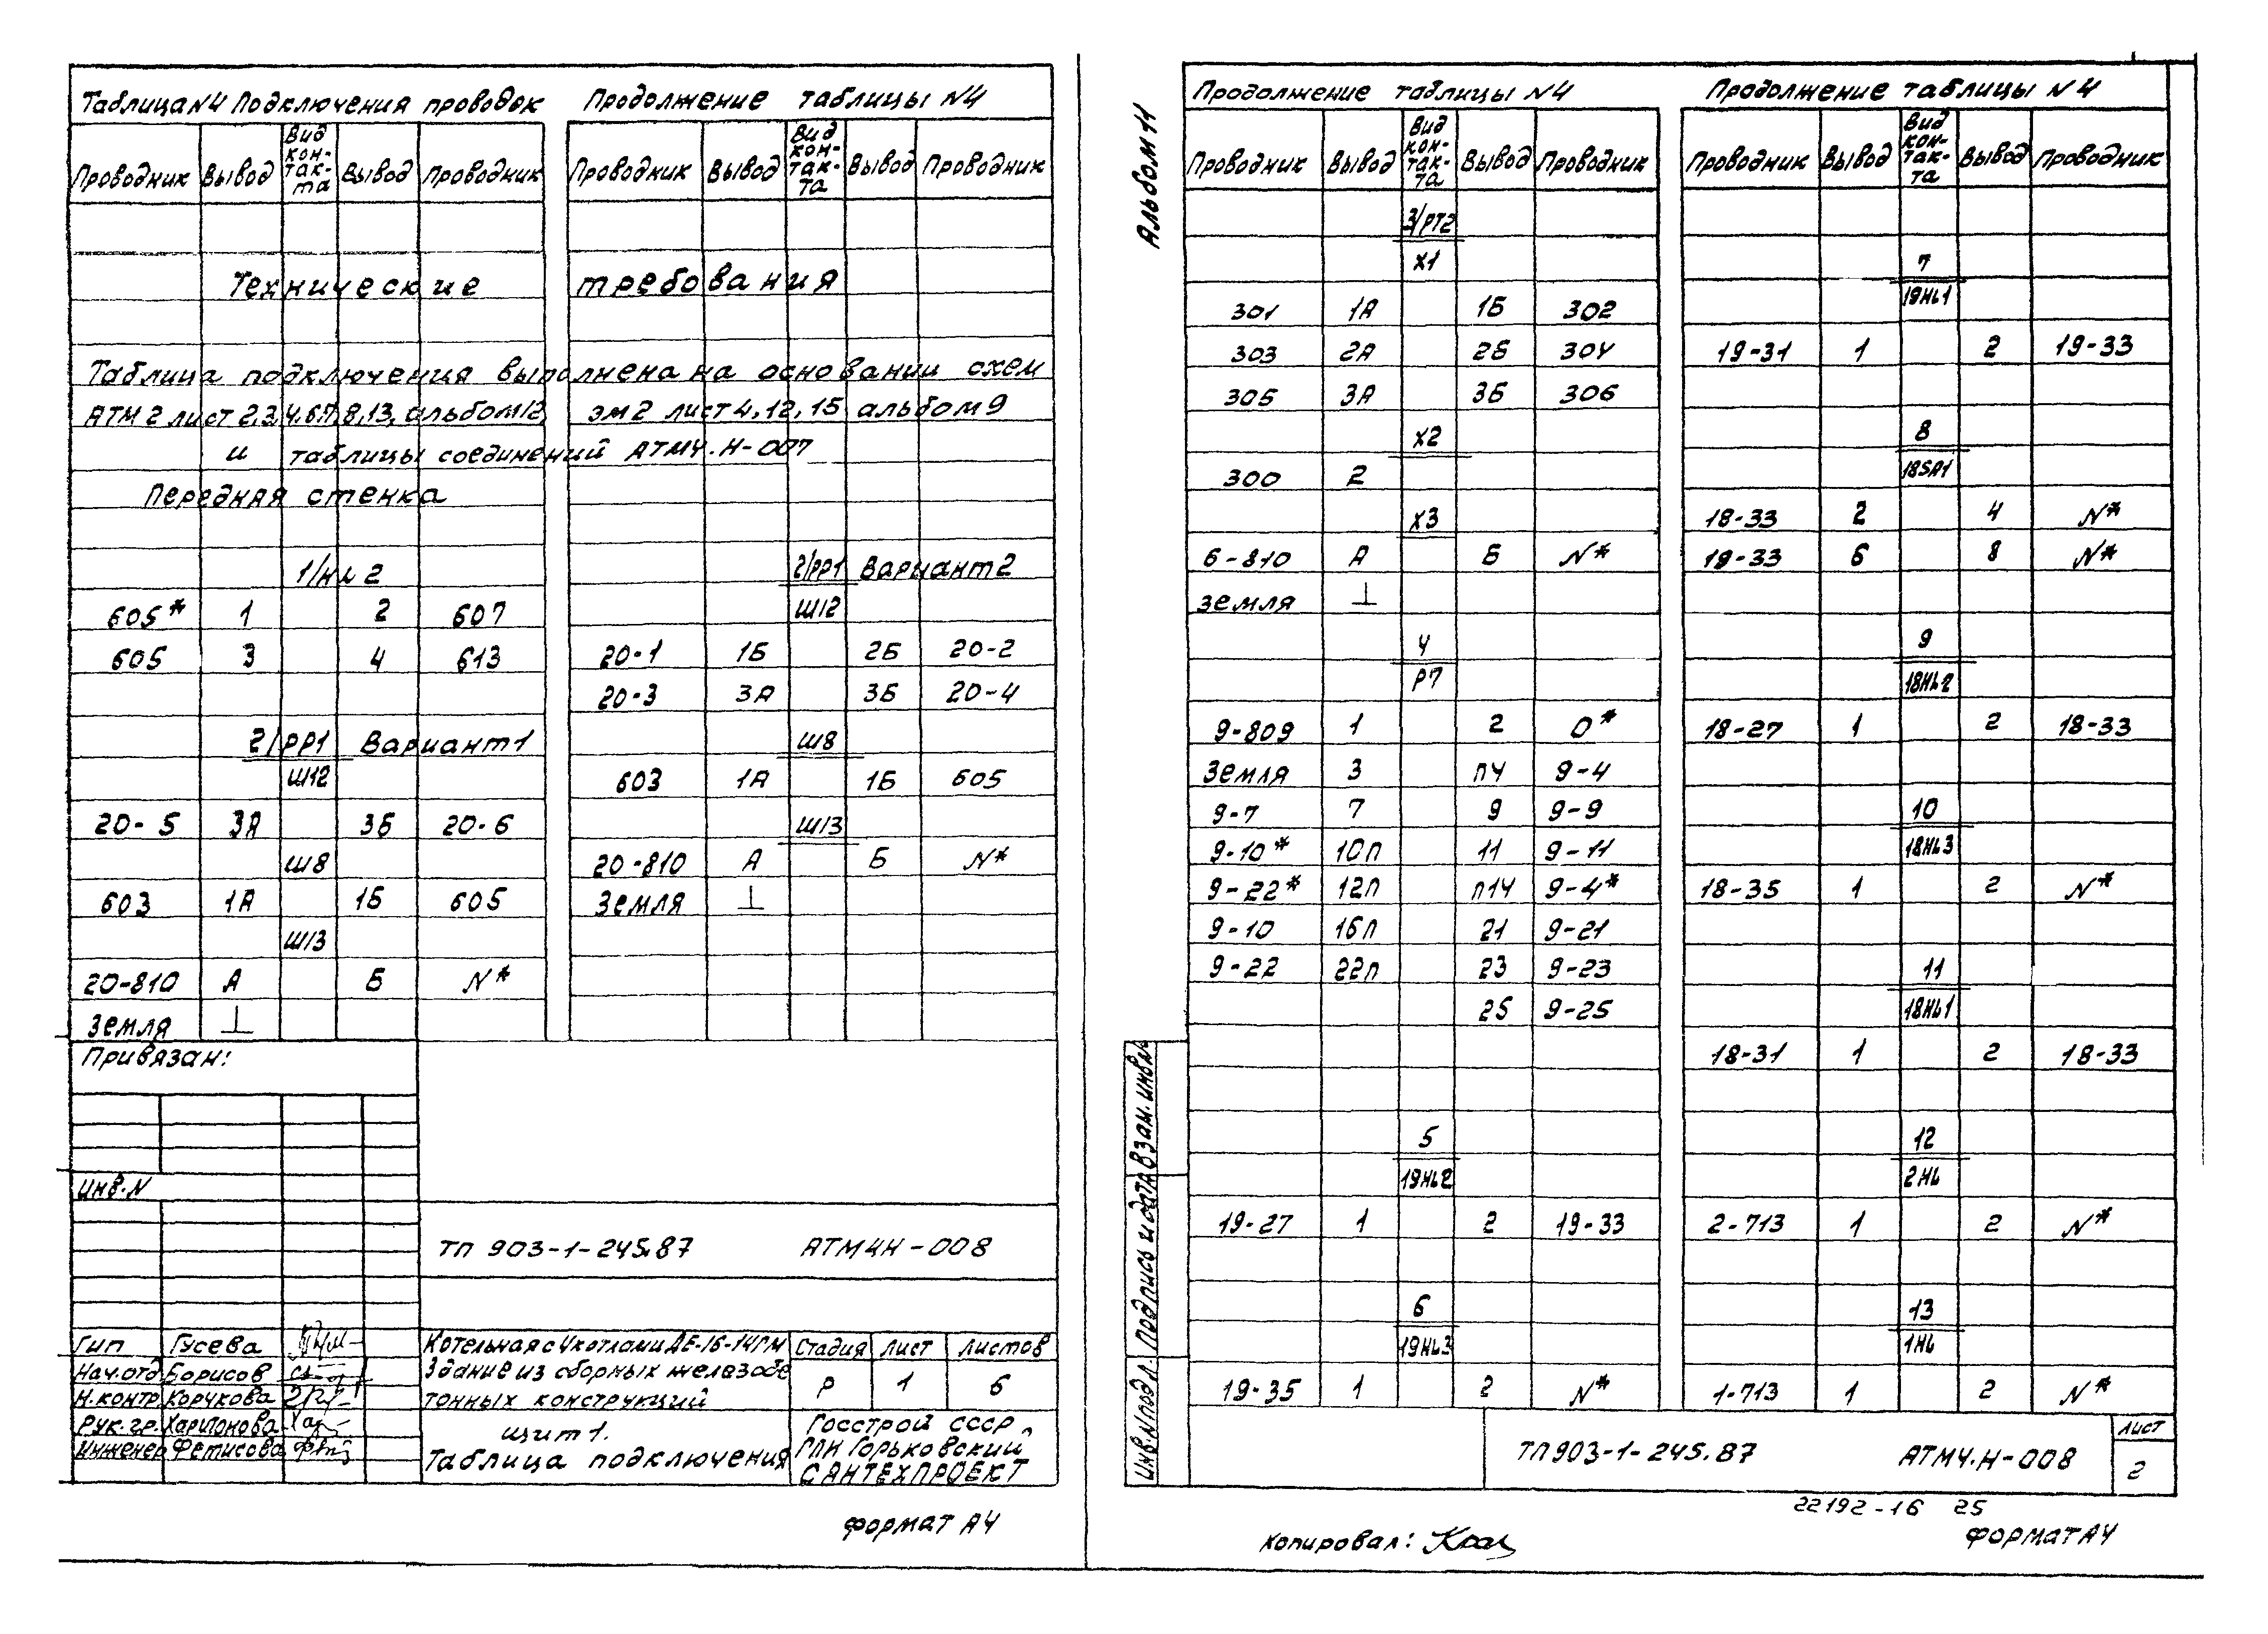 Таблица N4 Подключения проводок
Проводник Вывод Вид кон-так-та Вывод Проводник
Технические требования
Таблица подключения выполнена на основании схем
АТМ2 лист 2,3,4,6,7,8,13, альбом 12, ЭМ2 лист 4,12,15 альбом 9
и таблицы соединений АТМ4.Н-007
Передняя стенка
1/HL2
605* 1 2 607
605 3 4 613
2/РР1 Вариант 1
Ш12
20-5 3А 3Б 20-6
Ш8
603 1А 1Б 605
Ш13
20-810 А Б N*
Земля ⊥
Продолжение таблицы N4
Проводник Вывод Вид кон-так-та Вывод Проводник
2/РР1 Вариант 2
Ш12
20-1 1Б 2Б 20-2
20-3 3А 3Б 20-4
Ш8
603 1А 1Б 605
Ш13
20-810 А Б N*
Земля ⊥
Привязан:
Инв.N
ТП 903-1-245.87 АТМ4Н-008
Гип Гусева
Нач.отд Борисов
Н.контр Корчкова
Рук.гр. Харитонова
Инженер Фетисова
Котельная с 4 котлами ДЕ-16-14ГМ
Здание из сборных железобе
тонных конструкций
Щит 1.
Таблица подключения
Стадия Лист Листов
Р 1 6
Госстрой СССР
ГПИ Горьковский
САНТЕХПРОЕКТ
Формат А4
Альбом 11
Продолжение таблицы N4
Проводник Вывод Вид кон-так-та Вывод Проводник
3/РТ2
Х1
301 1А 1Б 302
303 2А 2Б 304
305 3А 3Б 306
Х2
300 2
Х3
6-810 А Б N*
Земля ⊥
4
Р7
9-809 1 2 0*
Земля 3 П4 9-4
9-7 7 9 9-9
9-10* 10П 11 9-11
9-22* 12П П14 9-4*
9-10 16П 21 9-21
9-22 22П 23 9-23
25 9-25
5
19HL2
19-27 1 2 19-33
6
19HL3
19-35 1 2 N*
Продолжение таблицы N4
Проводник Вывод Вид кон-так-та Вывод Проводник
7
19HL1
19-31 1 2 19-33
8
18SA1
18-33 2 4 N*
19-33 6 8 N*
9
18HL2
18-27 1 2 18-33
10
18HL3
18-35 1 2 N*
11
18HL1
18-31 1 2 18-33
12
2HL
2-713 1 2 N*
13
1HL
1-713 1 2 N*
Инв.N подл. Подпись и дата Взам.инв.N
ТП 903-1-245.87 АТМ4.Н-008
Лист
2
22192-16 25
Копировал:
Формат А4